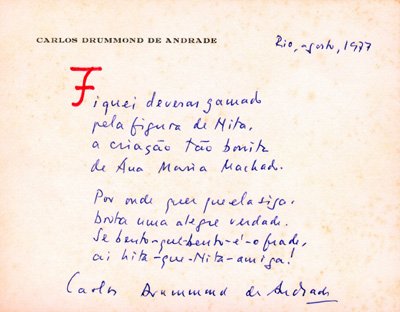 CARLOS DRUMMOND DE ANDRADE
Rio, agosto, 1977
Fiquei deveras gamado
pela figura de Mita,
a criação tão bonita
de Ana Maria Machado.
Por onde quer que ela siga,
brota uma alegre verdade.
Se bento-que-bento-é-o frade,
ai Mita-que-Mita-amiga!
Carlos Drummond de Andrade